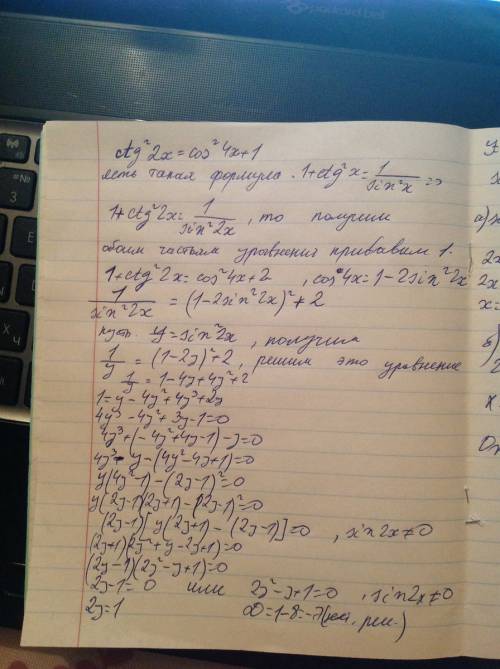 packard bell
ctg²2x = cos²4x+1
есть такая формула. 1+ctg²x = 1/sin²x ⇒
1+ctg²2x = 1/sin²2x, то получим
обоим частям уравнения прибавим 1.
1+ctg²2x = cos²4x+2, cos4x = 1-2sin²2x
1/sin²2x = (1-2sin²2x)²+2
пусть y = sin²2x, получим
1/y = (1-2y)²+2, решим это уравнение
1/y = 1-4y+4y²+2
1 = y-4y²+4y³+2y
4y³-4y²+3y-1=0
4y³+(-4y²+4y-1)-y=0
4y³-y-(4y²-4y+1)=0
y(4y²-1)-(2y-1)²=0
y(2y-1)(2y+1)-(2y-1)²=0
(2y-1)[y(2y+1)-(2y-1)]=0, sin2x≠0
(2y+1)(2y²+y-2y+1)=0
(2y-1)(2y²-y+1)=0
2y-1=0 или 2y²-y+1=0, sin2x≠0
2y=1 D=1-8=-7 (реш.)
а)
2x
2x
x=
б)
x